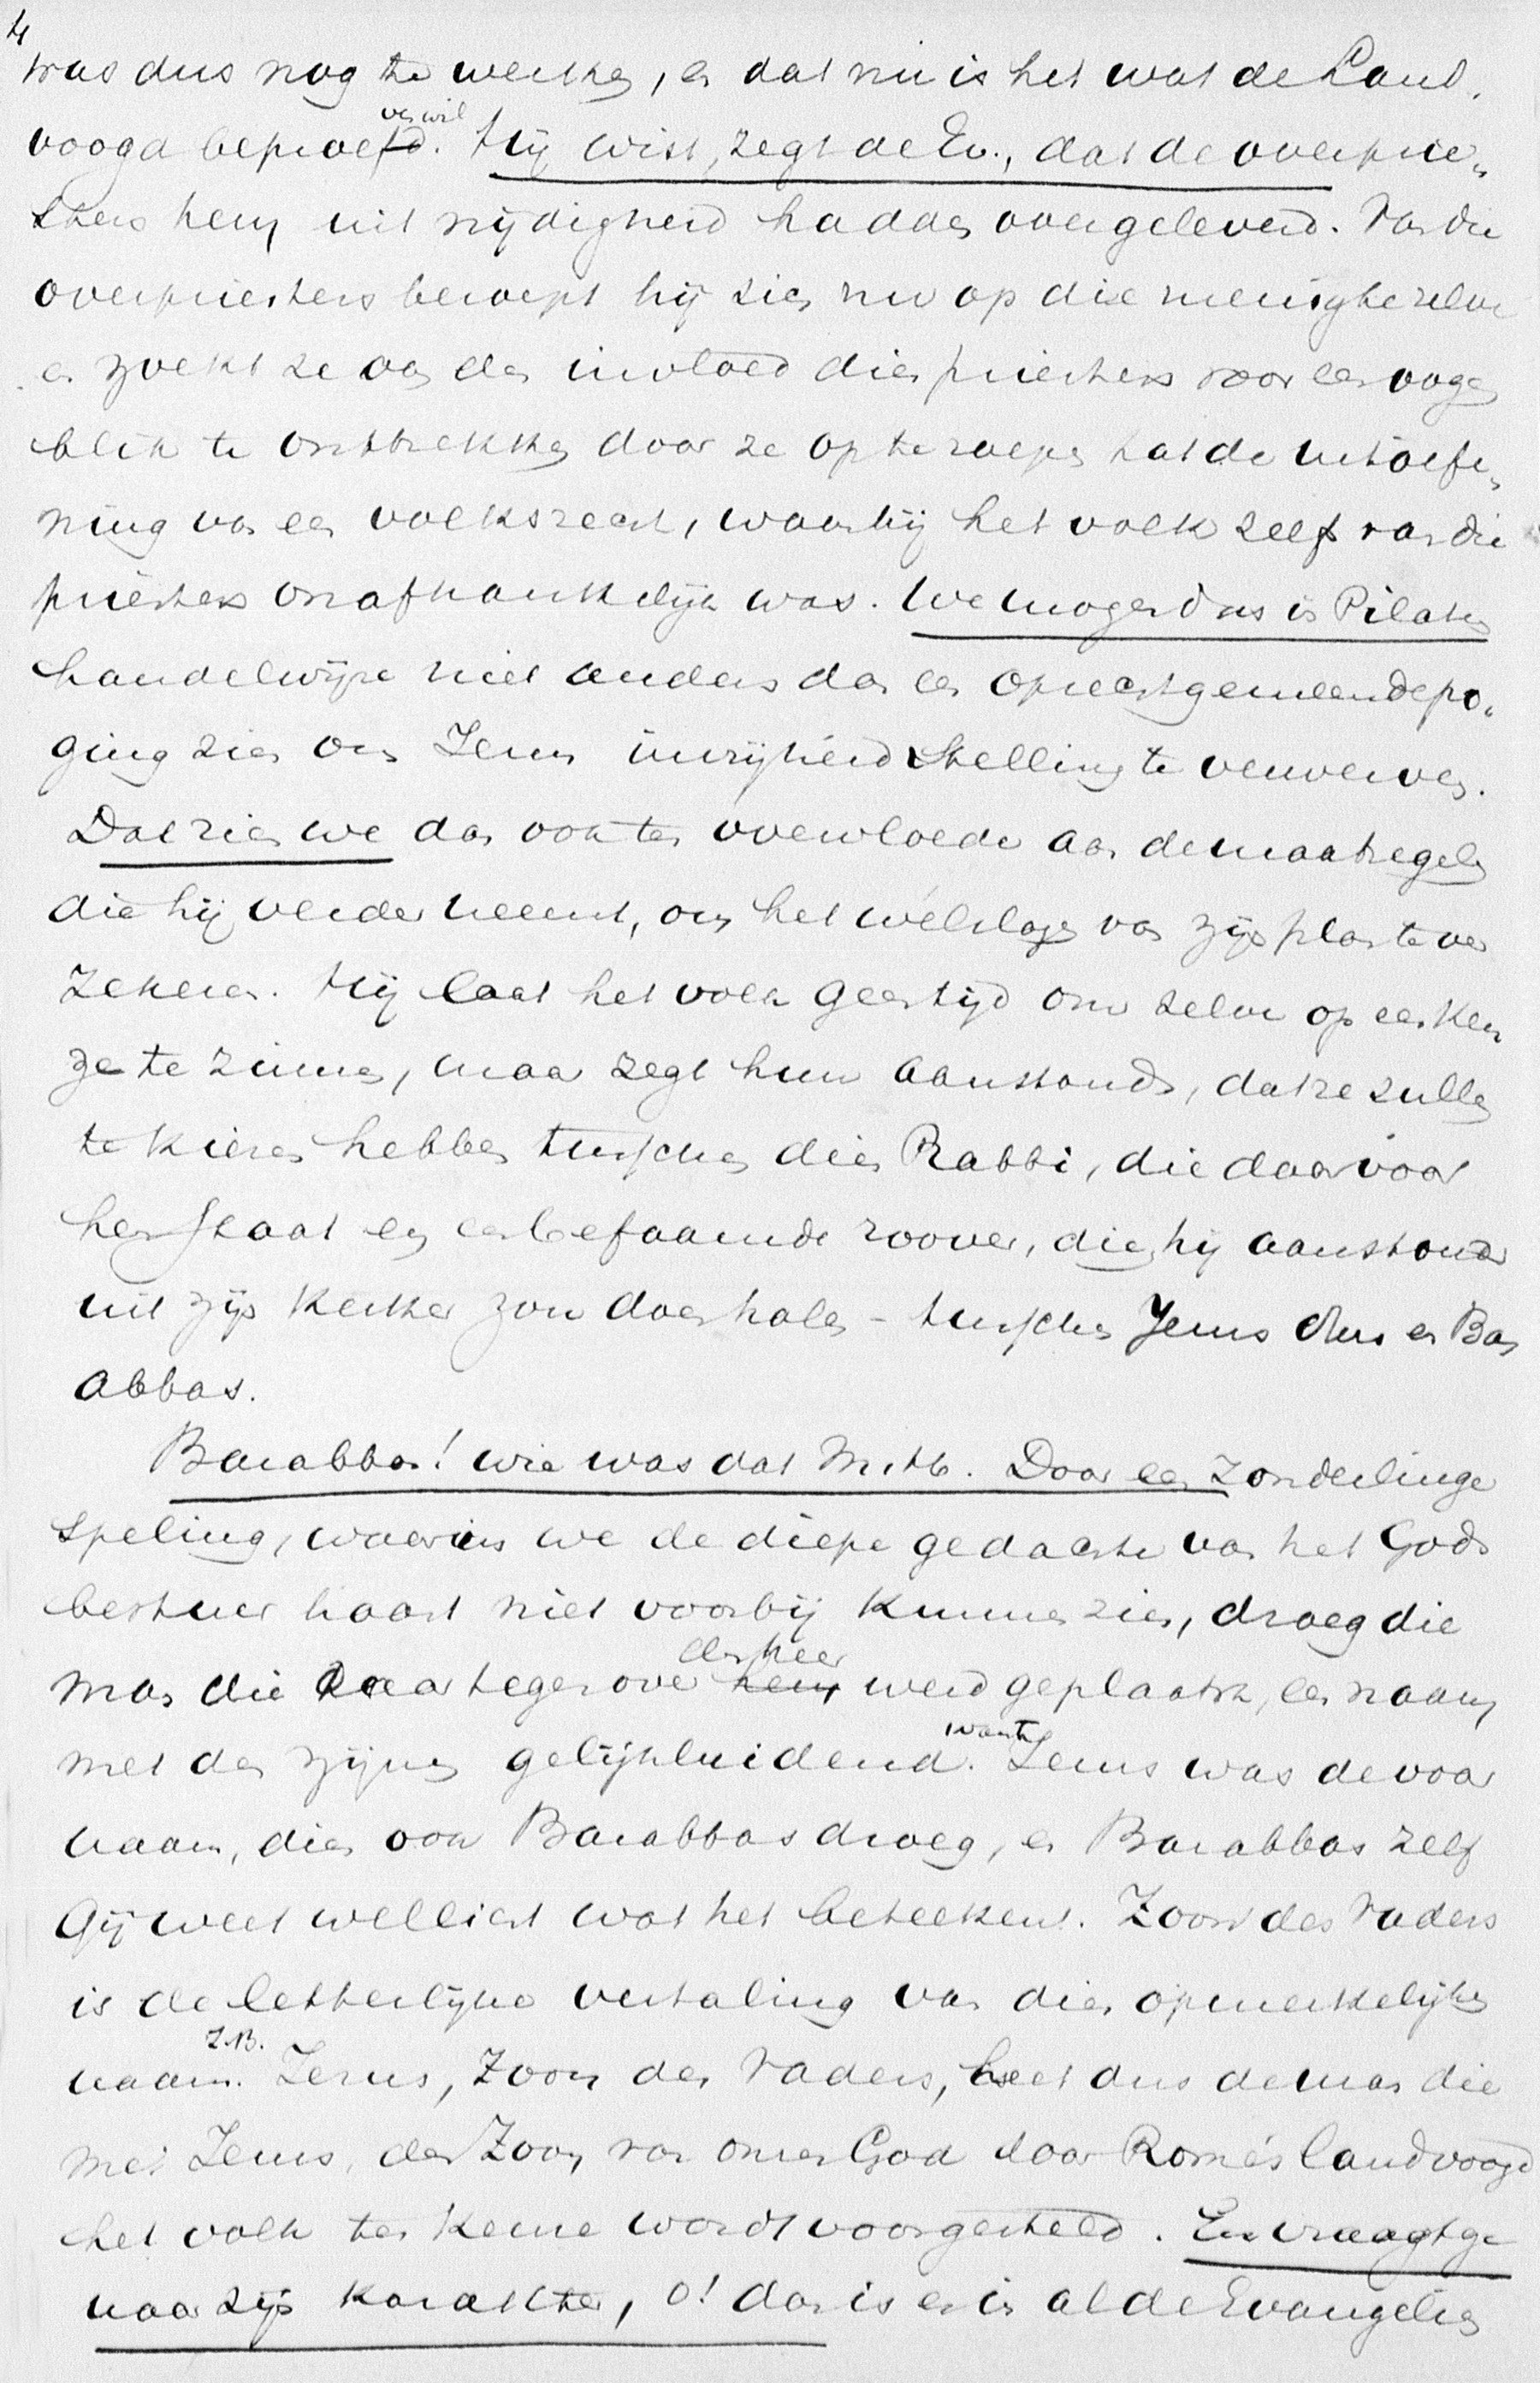 4
was dus nog te werken, en dat nu is het wat de Land„
voogd beproeven wil. Hij wist, zegt de Ev., dat de overprie„
sters hem uit nijdigheid hadden overgeleverd. Van die
overpriesters beroept hij zich nu op die menigte zelve
en zoekt ze aan den invloed dier priesters voor een oogen
blik te onttrekken door ze op te roepen tot de uitoefe„
ning van een volksrecht, waarbij het volk zelf van die
priesters onafhankelijk was. We mogen dus in Pilatus
handelwijze niet anders dan een oprechtgemeende po„
ging zien om Jezus invrijheidstelling te verwerven.
Dat zien we dan ook ten overvloede aan de maatregelen
die hij verder neemt, om het wélslagen van zijn plan te ver
zekeren. Hij laat het volk geen tijd om zelve op een keu
ze te zinnen, maar zegt hun aanstonds, dat ze zullen
te kiezen hebben tusschen dien Rabbi, die daar voor
hen staat en een befaamde roover, dien hij aanstonds
uit zijn kerker zou doen halen – tusschen Jezus dus en Bar
abbas.
Barabbas! wie was dat M. H. Door een zonderlinge
speling, waarin we de diepe gedachte van het Gods
bestuur haast niet voorbij kunnen zien, droeg die
man die daar tegenover den Heer werd geplaatst, een naam
met den zijnen gelijkluidend. want Jezus was de voor
naam, dien ook Barabbas droeg, en Barabbas zelf
Gij weet wellicht wat het beteekent. Zoon des Vaders
is de letterlijke vertaling van dien opmerkelijken
naam. Z.B. Jezus, Zoon des Vaders, heet dus de man die
met Jezus, den Zoon van onzen God door Rome's landvoogd
het volk ter keuze wordt voorgesteld. En vraagt ge
naar zijn karakter, o! dan is er in al de Evangeliën